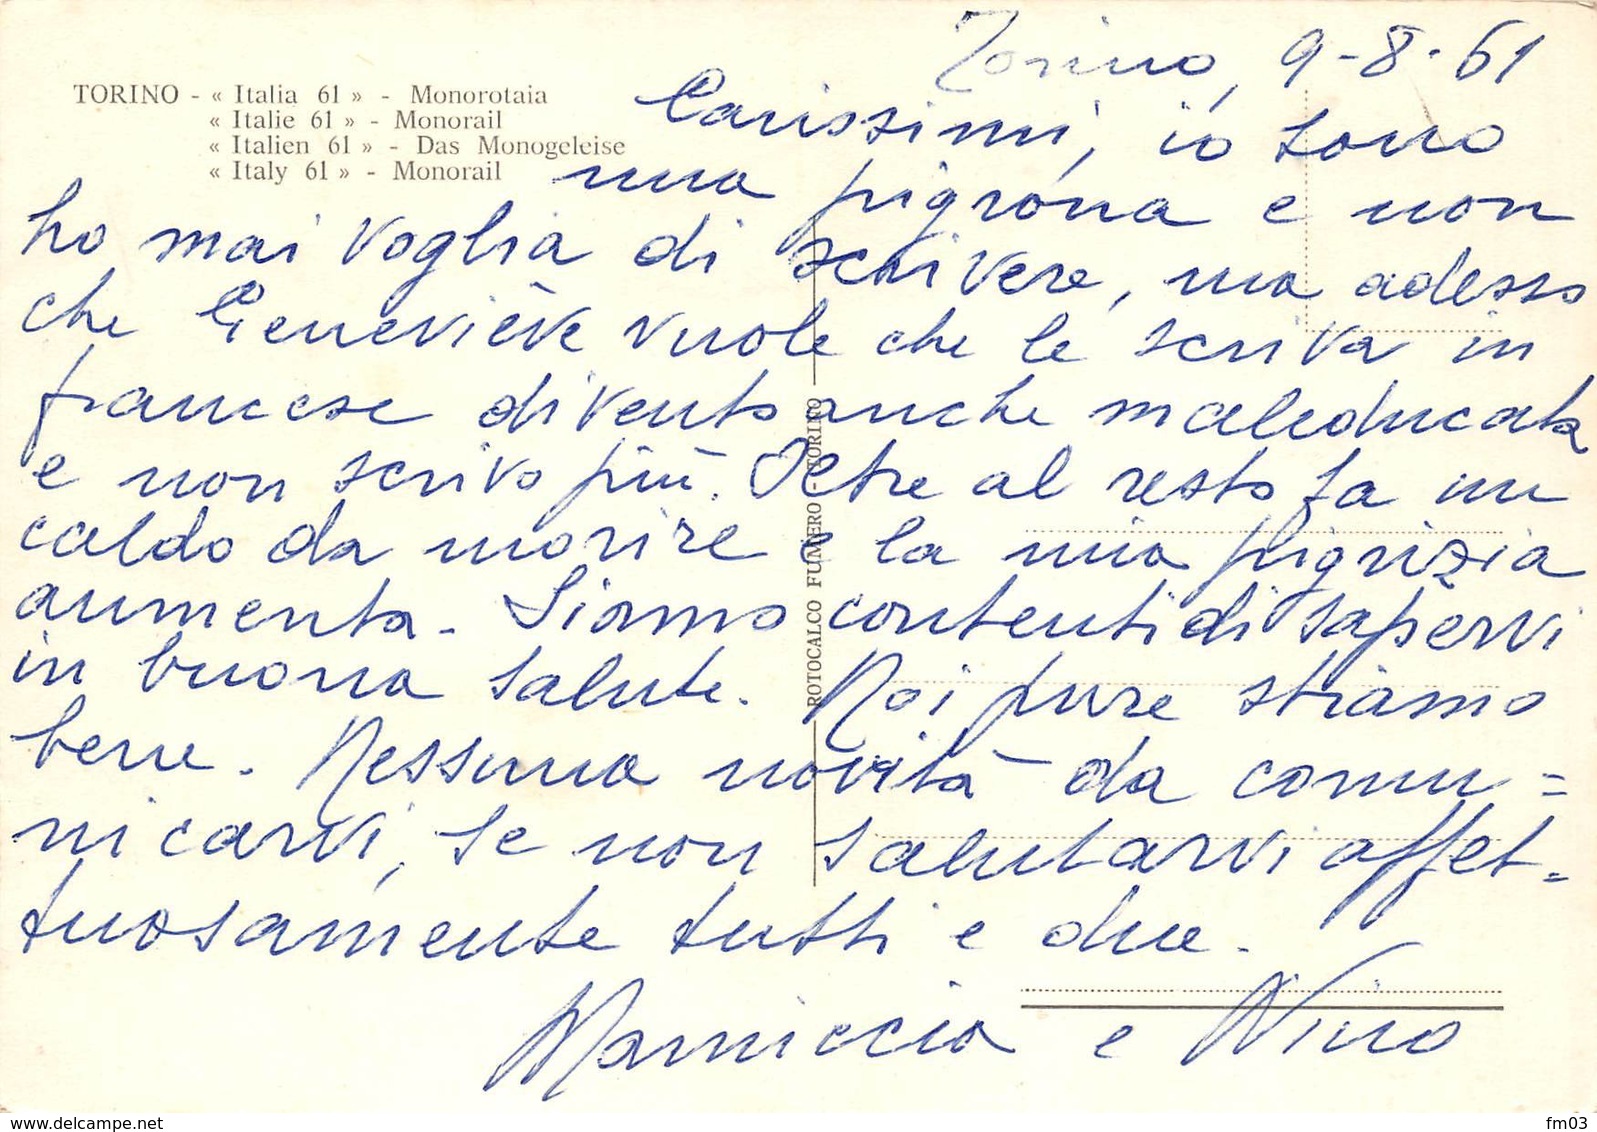 TORINO - « Italia 61 » - Monorotaia
« Italie 61 » - Monorail
« Italien 61 » - Das Monogeleise
« Italy 61 » - Monorail
Torino, 9-8-61
Carissimi, io sono
una pigrona e non
ho mai voglia di scrivere, ma adesso
che Geneviève vuole che le scriva in
francese divento anche maleducata
e non scrivo più. Oltre al resto fa un
caldo da morire e la mia pigrizia
aumenta. Siamo contenti di sapervi
in buona salute. Noi pure stiamo
bene. Nessuna novità da comu=
nicarvi, se non salutarvi affet=
tuosamente tutti e due.
e Nino
ROTOCALCO FUMERO - TORINO
www.delcampe.net
fm03